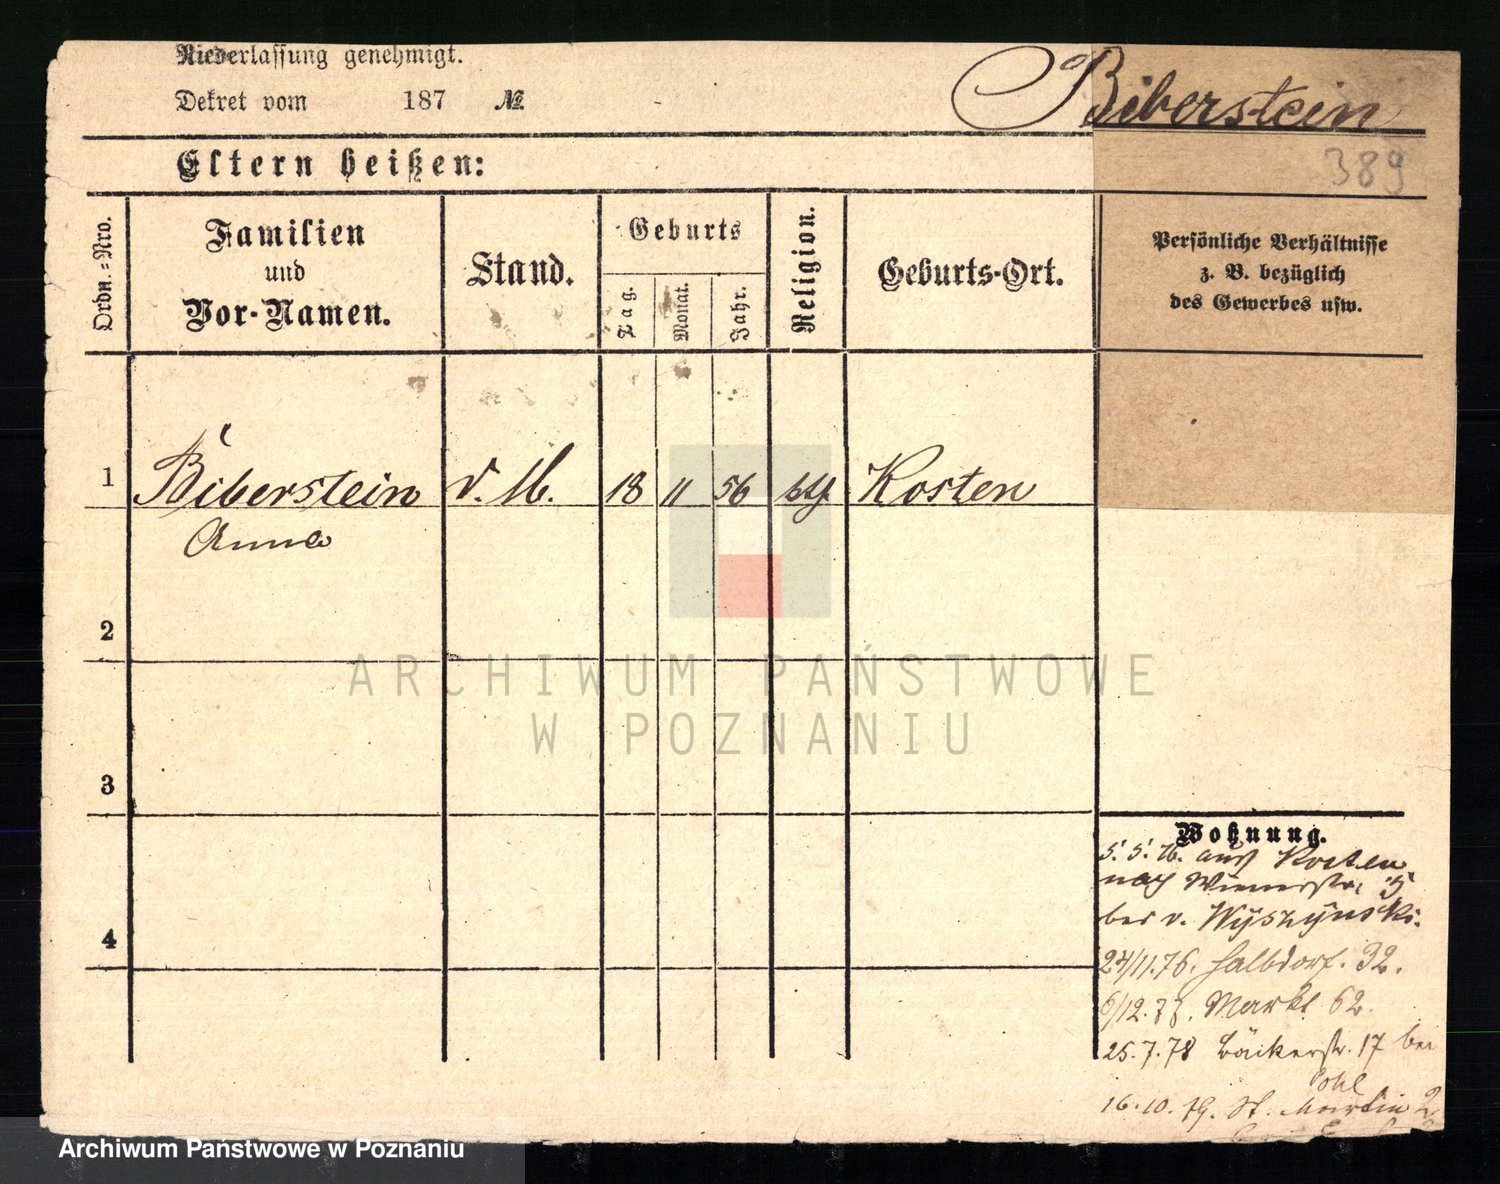 Niederlassung genehmigt.
Dekret vom 187 №
Biberstein
389
Eltern heißen:
Ordn.-Nro.
Familien
und
Vor-Namen.
Stand.
Geburts
Tag.
Monat.
Jahr.
Religion.
Geburts-Ort.
Persönliche Verhältnisse
z. B. bezüglich
des Gewerbes usw.
1 Biberstein d. M. 18 11 56 Kosten
Anna
2
3
4
Wohnung.
5. 5. 76. aus Kosten
nach Wienerstr. 5
bei v. Wyszynski.
24/11.76. Halbdorf. 32.
6/12.77. Markt 62.
25.7.78 Bäckerstr. 17 bei
Pohl
16.10.79. St. Martin 2
ARCHIWUM PAŃSTWOWE
W POZNANIU
Archiwum Państwowe w Poznaniu